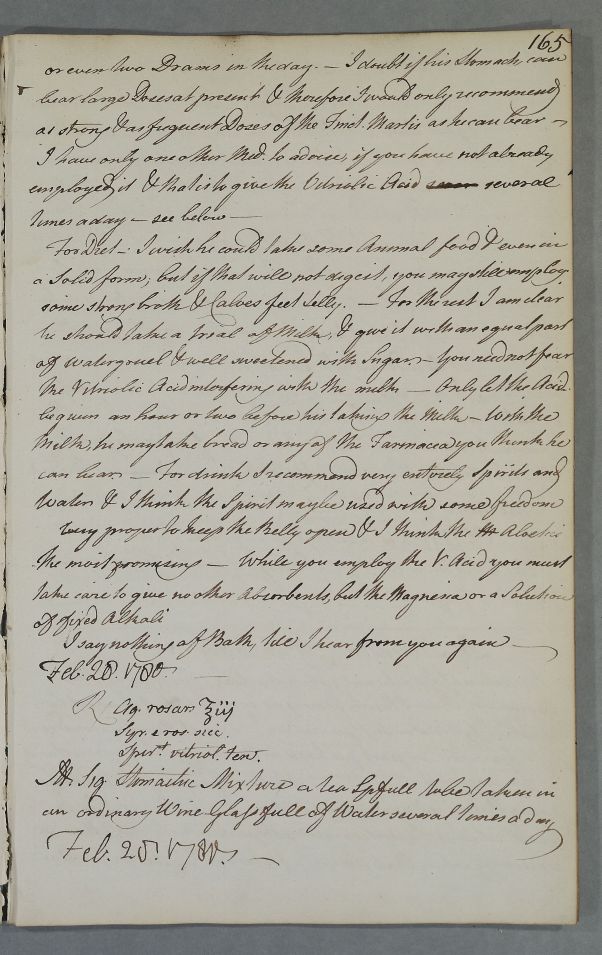 165
or even two Drams in the day. — I doubt if his Stomach, can
bear large Doses at present & therefore I would only recommend
as strong & as frequent Doses of the Tinct. Martis as he can bear —
I have only one other Med. to advise, if you have not already
employed it & that is to give the Vitriolic Acid several
times a day — see below —
For Diet — I wish he could take some Animal food & even in
a Solid form; but if that will not digest, you may still employ
some strong broth & Calves feet Jelly. — For the rest I am clear
he should take a trial of Milk, & give it with an equal part
of watergruel & well sweetened with Sugar — You need not fear
the Vitriolic Acid interfering with the milk — Only let the Acid
be given an hour or two before his taking the Milk — With the
Milk, he may take bread or any of the Farinacea you think he
can bear — For drink I recommend very entirely Spirits and
Water & I think the Spirit may be used with some freedom
Very proper to keep the Belly open & I think the Aloetic
the most promising — While you employ the V. Acid you must
take care to give no other Absorbents, but the Magnesia or a Solution
of fixed Alkali
I say nothing of Bath, till I hear from you again —
Feb. 28. 1780. —
℞ Aq. rosar ℥iij
Syr. e ros. sicc.
Spirt. vitriol. ten.
M. Sig. Stomachic Mixture a tea Spfull to be taken in
an ordinary Wine Glass full of Water several times a day
Feb. 28. 1780. —